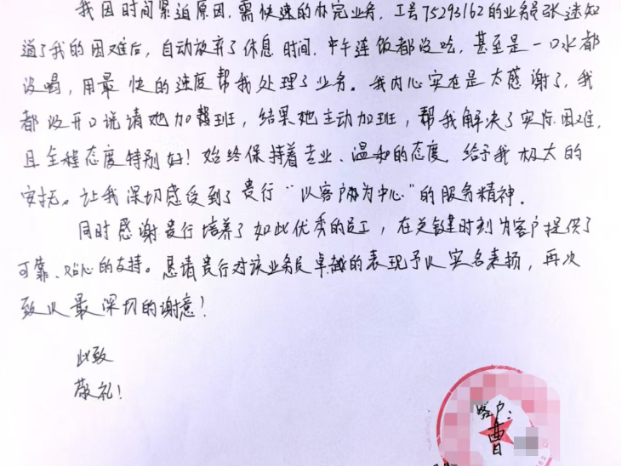 我因时间紧迫原因,需快速的办完业务,工号75293162的业务员张速知
道了我的困难后,自动放弃了休息时间,中午连饭都没吃,甚至是一口水都
没喝,用最快的速度帮我处理了业务。我内心实在是太感谢了,我
都没开口说请她加餐班,结果她主动加班,帮我解决了实际困难,
且全程态度特别好!始终保持着专业、温和的态度。给予我极大的
安抚。让我深切感受到了贵行“以客户为中心”的服务精神。
同时感谢贵行培养了如此优秀的员工,在关键时刻为客户提供了
可靠、贴心的支持。恳请贵行对该业务员卓越的表现予以实名表扬,再次
致以最深切的谢意!
此致
敬礼!
客户:
曹